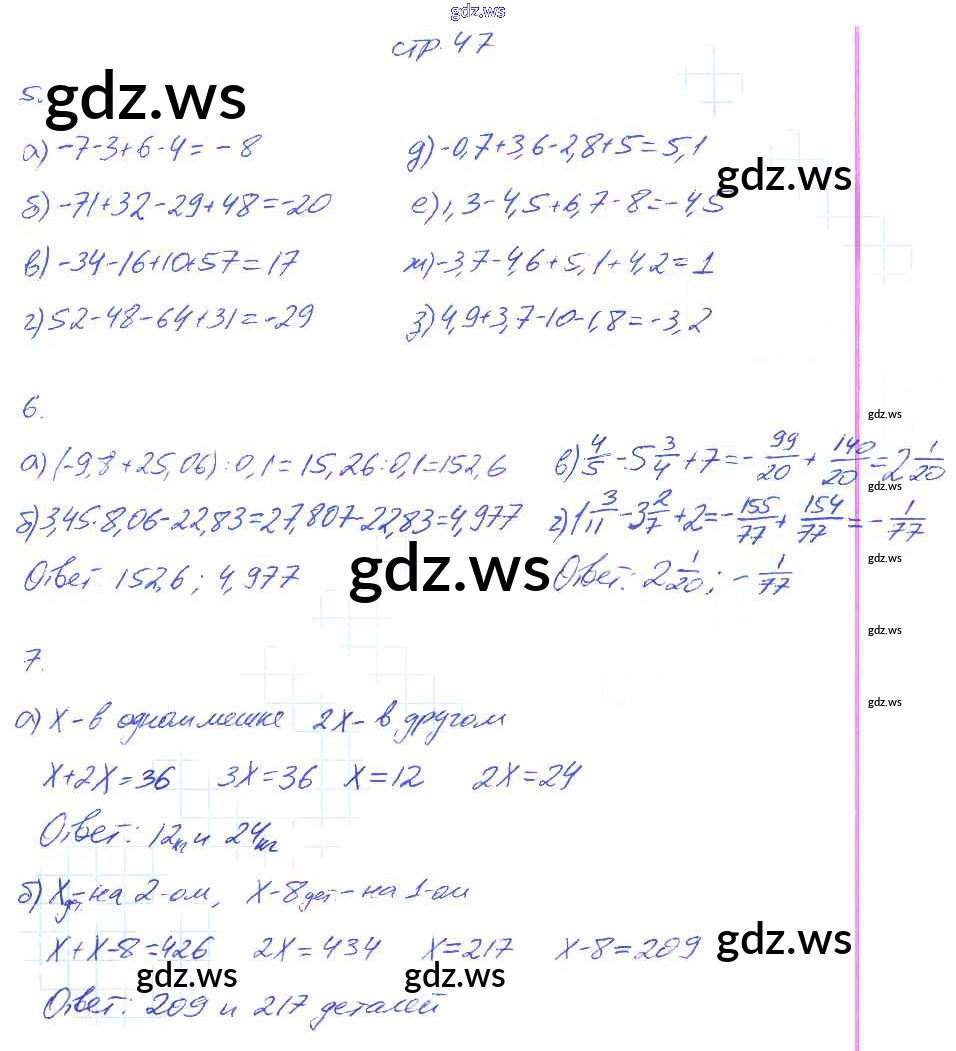 gdz.ws
стр. 47
5. gdz.ws
а) -7-3+6-4 = -8 д) -0,7+3,6-2,8+5=5,1
gdz.ws
б) -71+32-29+48=-20 е) 1,3-4,5+6,7-8=-4,5
в) -34-16+10+57=17 ж) -3,7-4,6+5,1+4,2=1
г) 52-48-64+31=-29 з) 4,9+3,7-10-1,8=-3,2
6.
gdz.ws
а) (-9,8+25,06):0,1=15,26:0,1=152,6 в) 4/5 - 5 3/4 + 7 = - 99/20 + 140/20 = 2 1/20
gdz.ws
б) 3,45·8,06-22,83=27,807-22,83=4,977 г) 1 3/11 - 3 2/7 + 2 = - 155/77 + 154/77 = - 1/77
gdz.ws
Ответ: 152,6; 4,977 gdz.ws Ответ: 2 1/20; - 1/77
gdz.ws
7.
gdz.ws
а) X - в одном мешке 2X - в другом
X+2X=36 3X=36 X=12 2X=24
Ответ: 12кг и 24кг
б) X дет - на 2-ом, X-8 дет - на 1-ом
X+X-8=426 2X=434 X=217 X-8=209 gdz.ws
gdz.ws gdz.ws
Ответ: 209 и 217 деталей